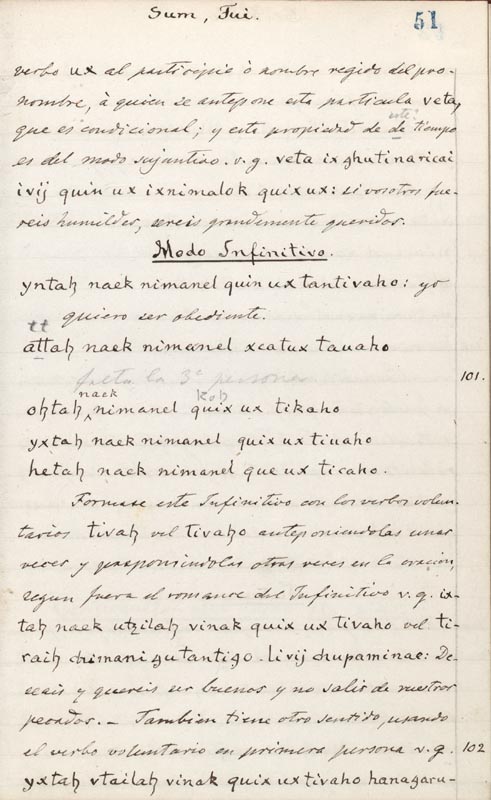 Sum, Fui.
51
verbo ux al participio ò nombre regido del pro-
nombre, à quien se antepone esta particula veta,
que es condicional; y esta propiedad de de tiempo
este?
es del modo sujuntivo. v. g. veta ix ghutinaricai
ivij quin ux ixnimalok quix ux: si vosotros fue-
reis humildes, sereis grandemente queridos.
Modo Infinitivo.
yntaꜫ naek nimanel quin ux tantivaho: yo
quiero ser obediente.
tt
attaꜫ naek nimanel xcatux tauaho
falta la 3ª persona
101.
naek
koꜫ
oꜫtaꜫ nimanel quix ux tikaho
yxtaꜫ naek nimanel quix ux tiuaho
hetaꜫ naek nimanel que ux ticaho.
Formase este Infinitivo con los verbos volun-
tarios tivaꜫ vel tivaꜫo anteponiendolas unas
veces y posponiendolas otras veces en la oracion,
segun fuera el romance del Infinitivo v. g. ix-
taꜫ naek utzilaꜫ vinak quix ux tivaho vel ti-
raiꜫ chimani gutantigo. livij chupaminae: De-
seais y quereis ser buenos y no salir de nuestros
pecados. – Tambien tiene otro sentido, usando
el verbo voluntario en primera persona v. g.
102
yxtaꜫ vtailaꜫ vinak quix ux tivaho hanagaru-